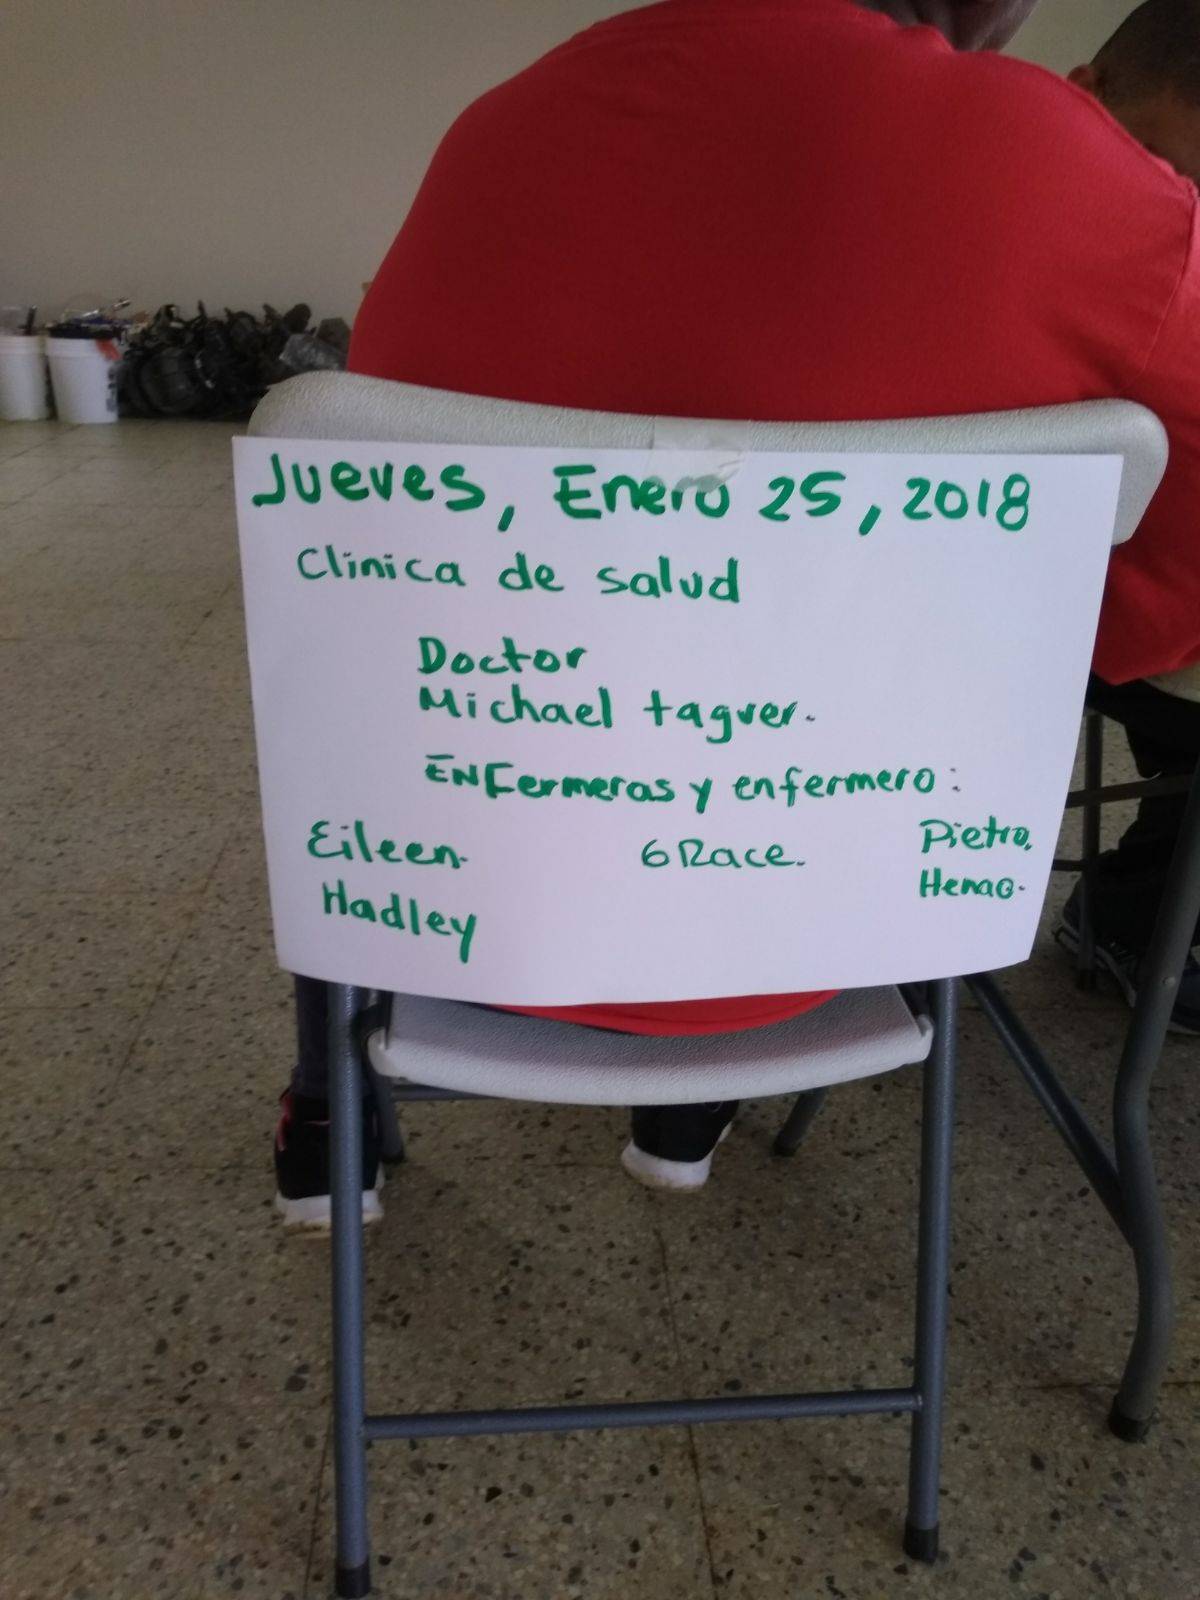 Jueves, Enero 25, 2018
Clinica de salud
Doctor
Michael tagver.
ENFermeras y enfermero:
Eileen. GRace. Pietro.
Hadley Henao.